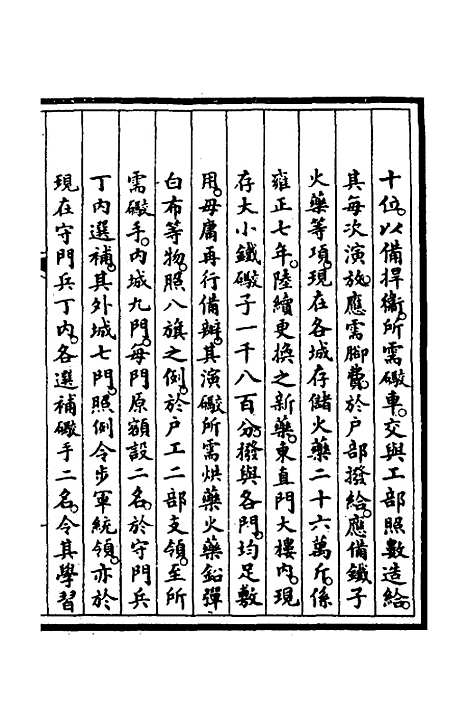 十位。以備捍衞。所需礮車。交與工部照數造給。
其每次演放。應需脚費。於户部撥給。應備鐵子
火藥等項。現在各城存儲火藥二十六萬斤。係
雍正七年。陸續更換之新藥。東直門大樓内。現
存大小鐵礮子一千八百分。撥與各門。均足敷
用。毋庸再行備辦。其演礮所需烘藥火藥鉛彈
白布等物。照八旗之例。於户工二部支領。至所
需礮手。内城九門。每門原額設二名。於守門兵
丁内選補。其外城七門。照例令步軍統領。亦於
現在守門兵丁内。各選補礮手二名。令其學習